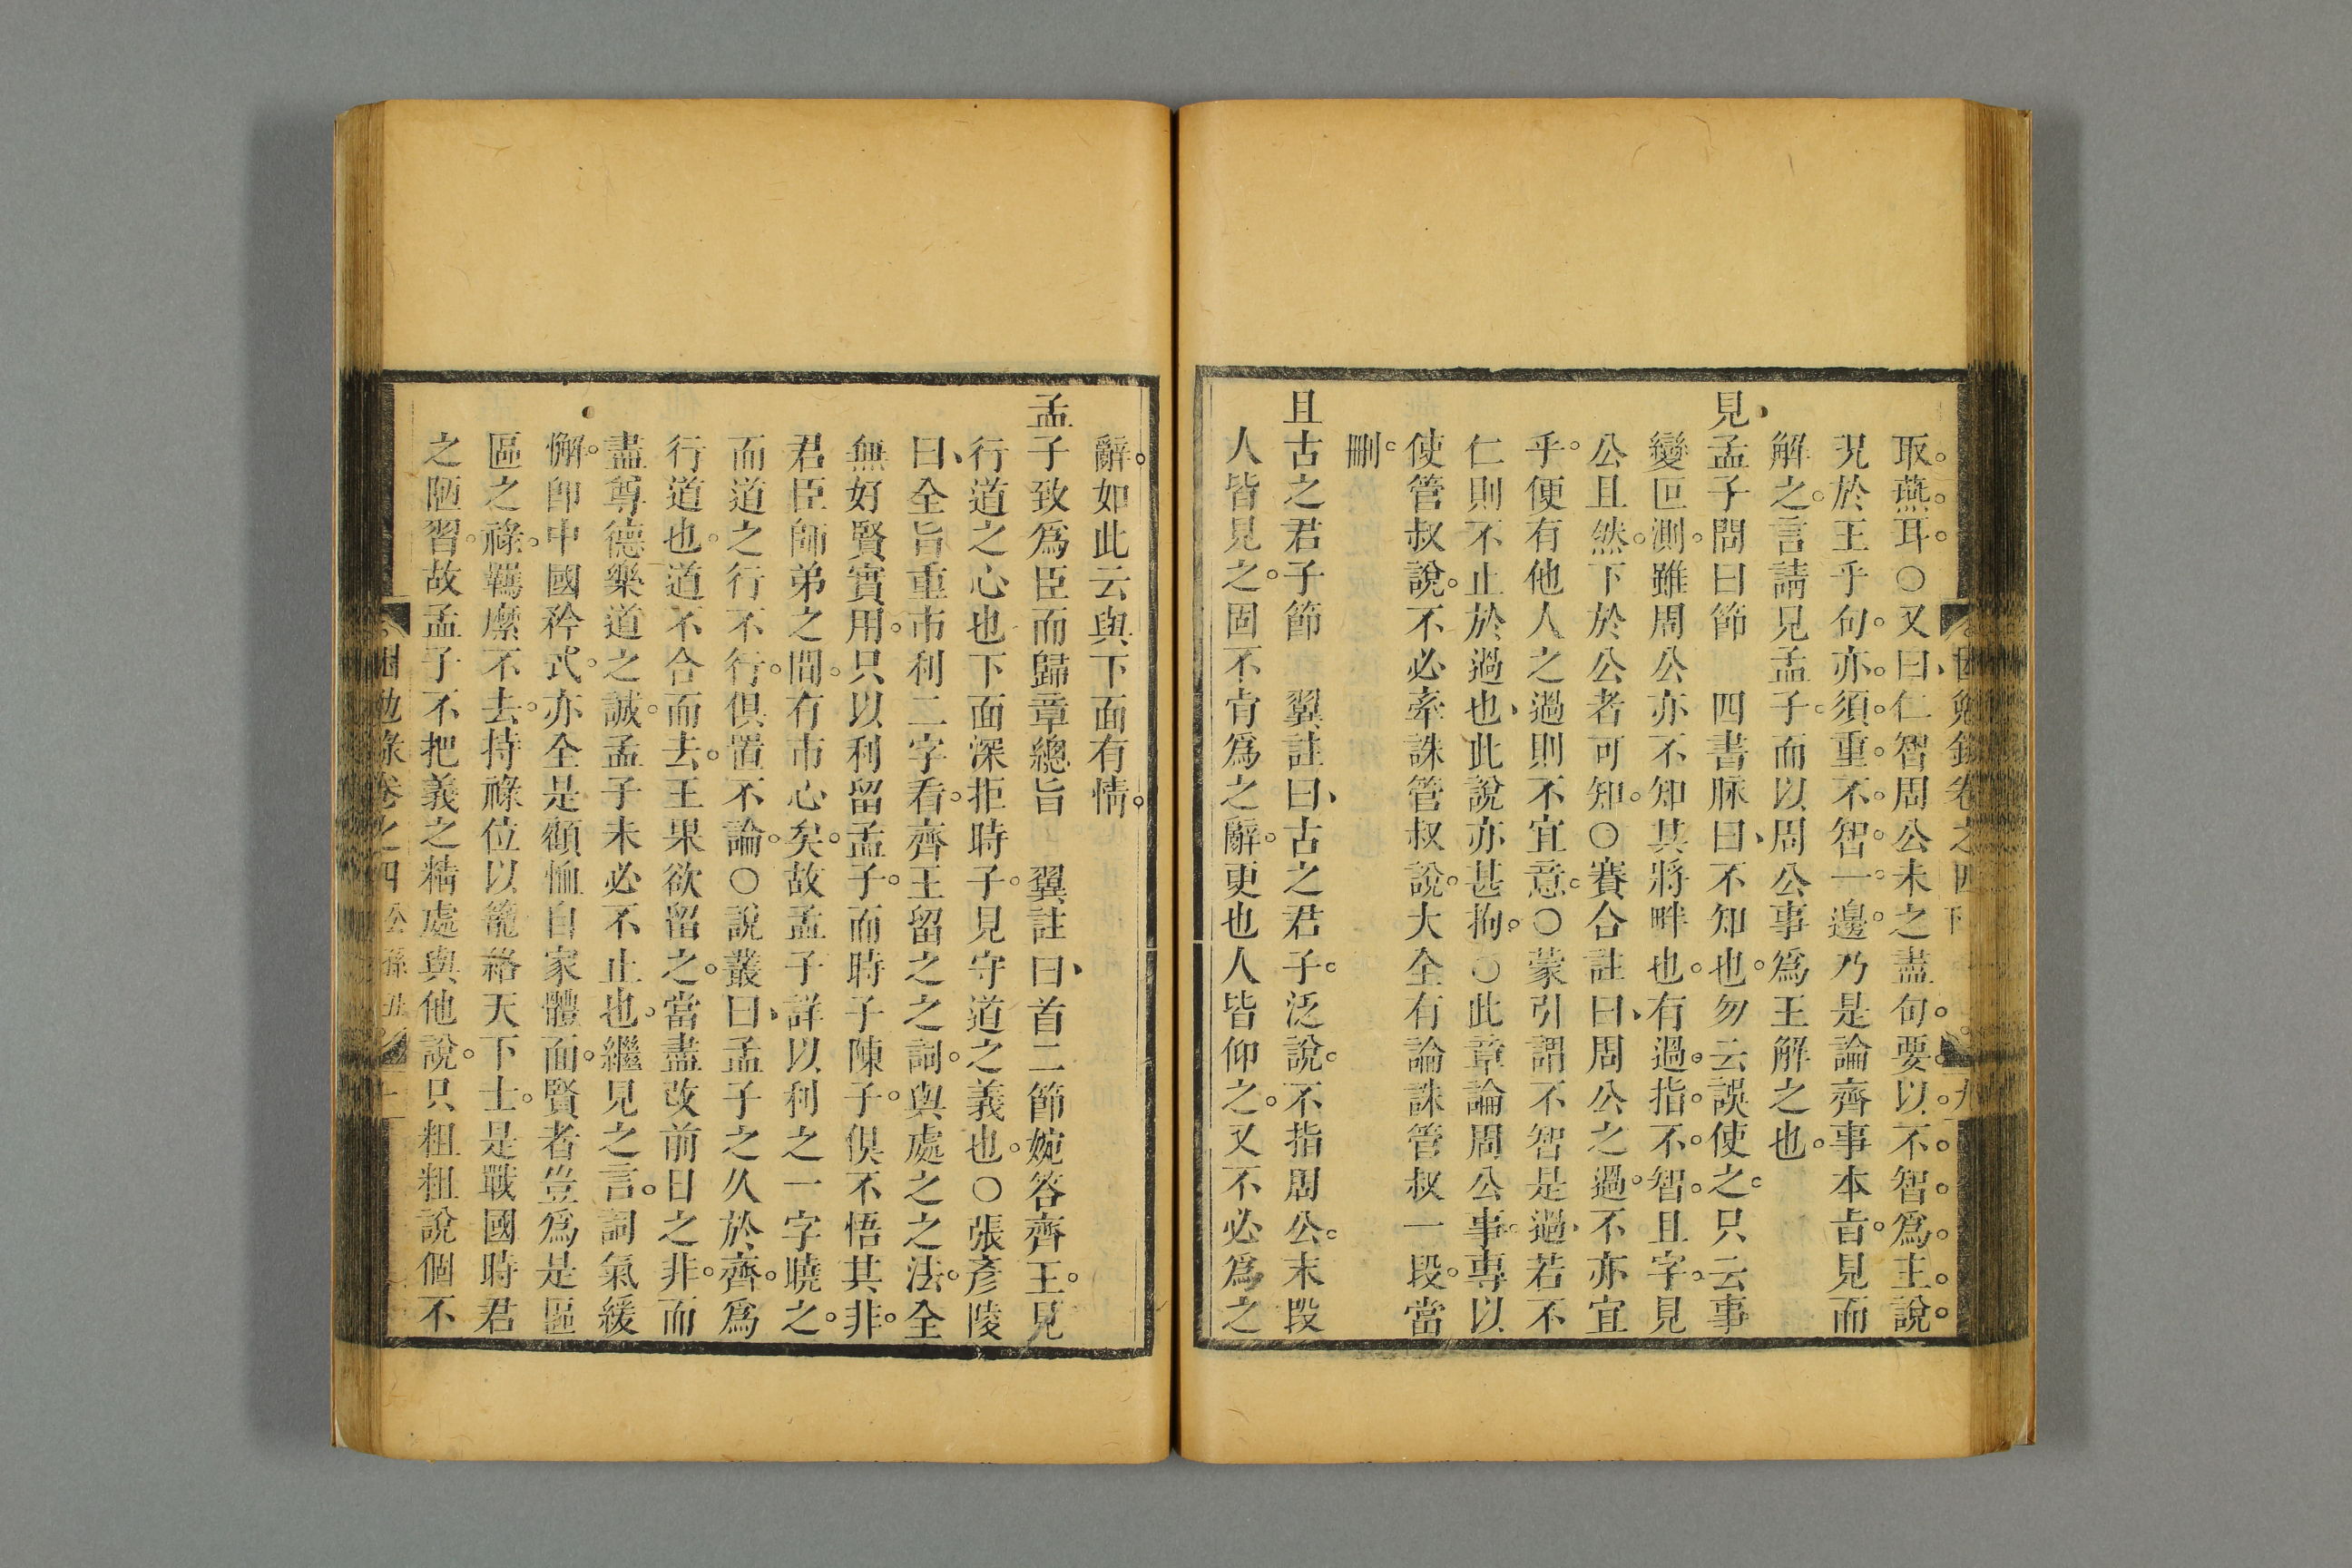 取燕耳○又曰仁智周公未之盡句要以不智爲主說
况於王乎句亦須重不智一邊乃是論齊事本旨見而
解之言請見孟子而以周公事爲王解之也
見孟子問曰節　四書脉曰不知也勿云誤使之只云事
變叵測雖周公亦不知其將畔也有過指不智且字見
公且然下於公者可知○賽合註曰周公之過不亦宜
乎便有他人之過則不宜意○蒙引謂不智是過若不
仁則不止於過也此說亦甚拘○此章論周公事專以
使管叔說不必牽誅管叔說大全有論誅管叔一段當
刪
且古之君子節　翼註曰古之君子泛說不指周公末段
人皆見之固不肯爲之辭更也人皆仰之又不必爲之
辭如此云與下面有情
孟子致爲臣而歸章總旨　翼註曰首二節婉答齊王見
行道之心也下面深拒時子見守道之義也○張彥陵
曰全旨重市利二字看齊王留之之詞與處之之法全
無好賢實用只以利留孟子而時子陳子俱不悟其非
君臣師弟之間有市心矣故孟子詳以利之一字曉之
而道之行不行俱置不論○說叢曰孟子之久於齊爲
行道也道不合而去王果欲留之當盡改前日之非而
盡尊德樂道之誠孟子未必不止也繼見之言詞氣緩
懈卽中國矜式亦全是顧恤自家體面賢者豈爲是區
區之祿羈縻不去持祿位以籠絡天下士是戰國時君
之陋習故孟子不把義之精處與他說只粗粗說個不
困勉錄卷之四　公孫丑